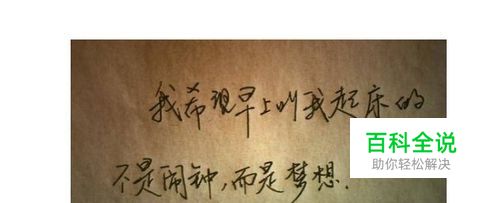 我希望早上叫我起床的
不是闹钟，而是梦想.
百科全说
助你轻松解决